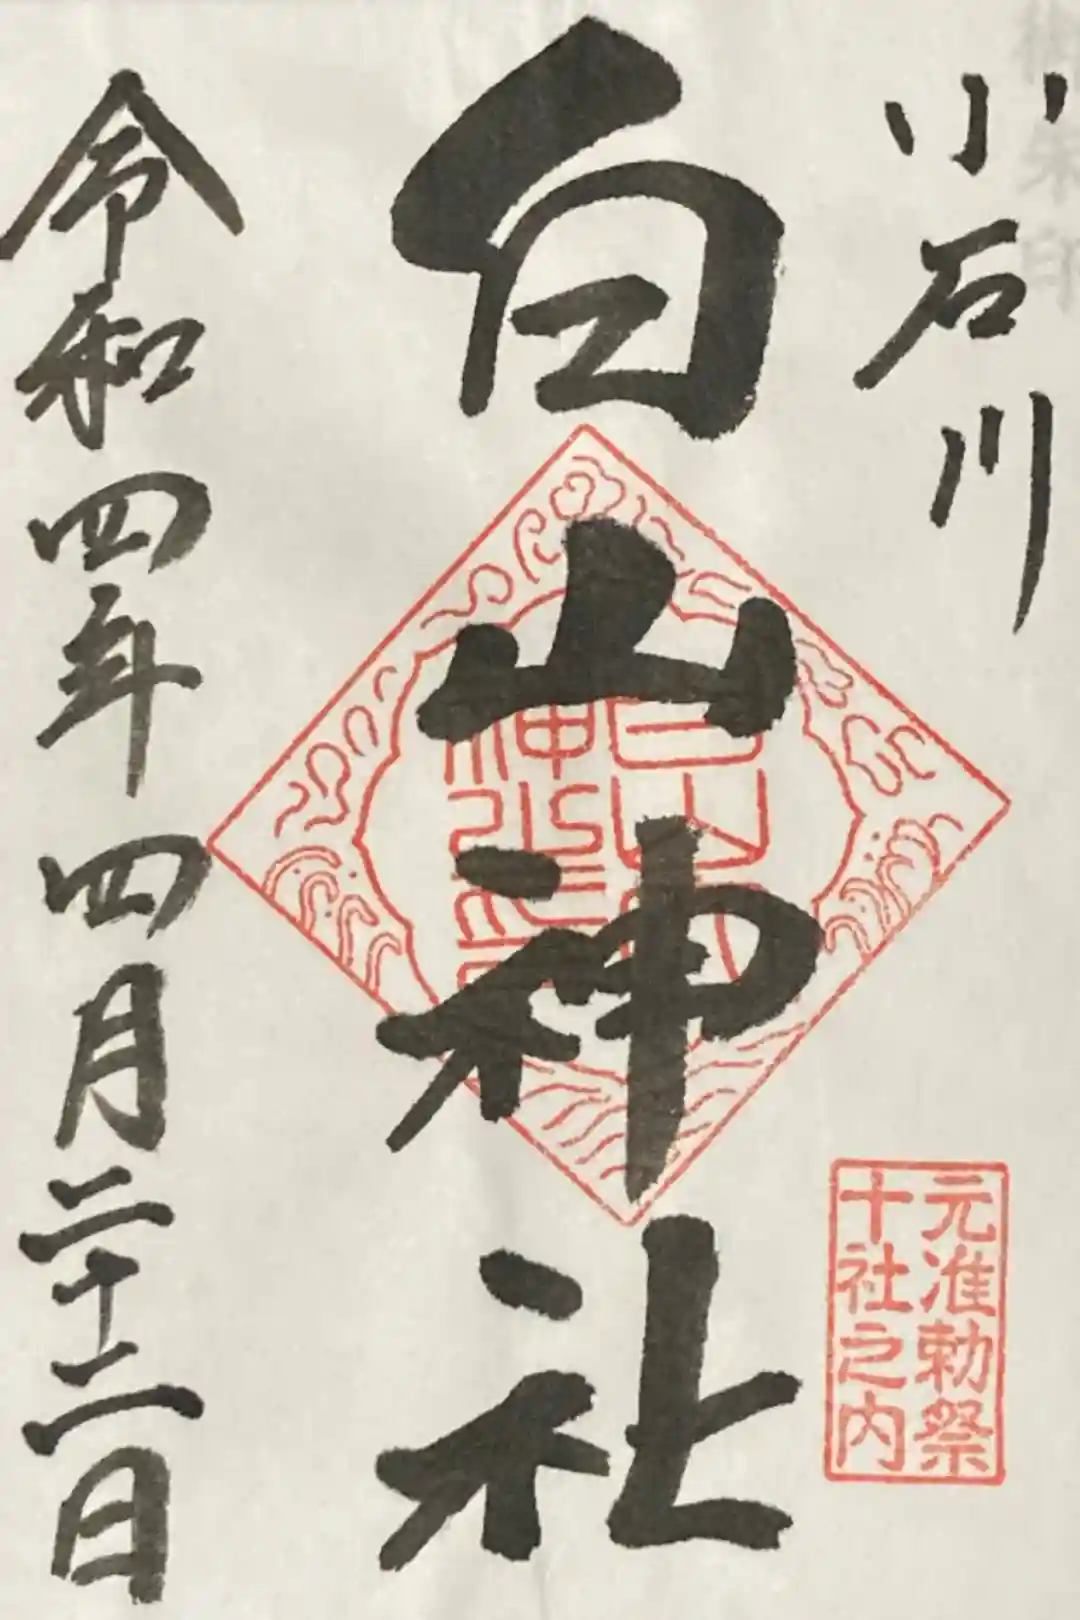 小石川
元准勅祭
十社之内
白山神社
令和四年四月二十二日